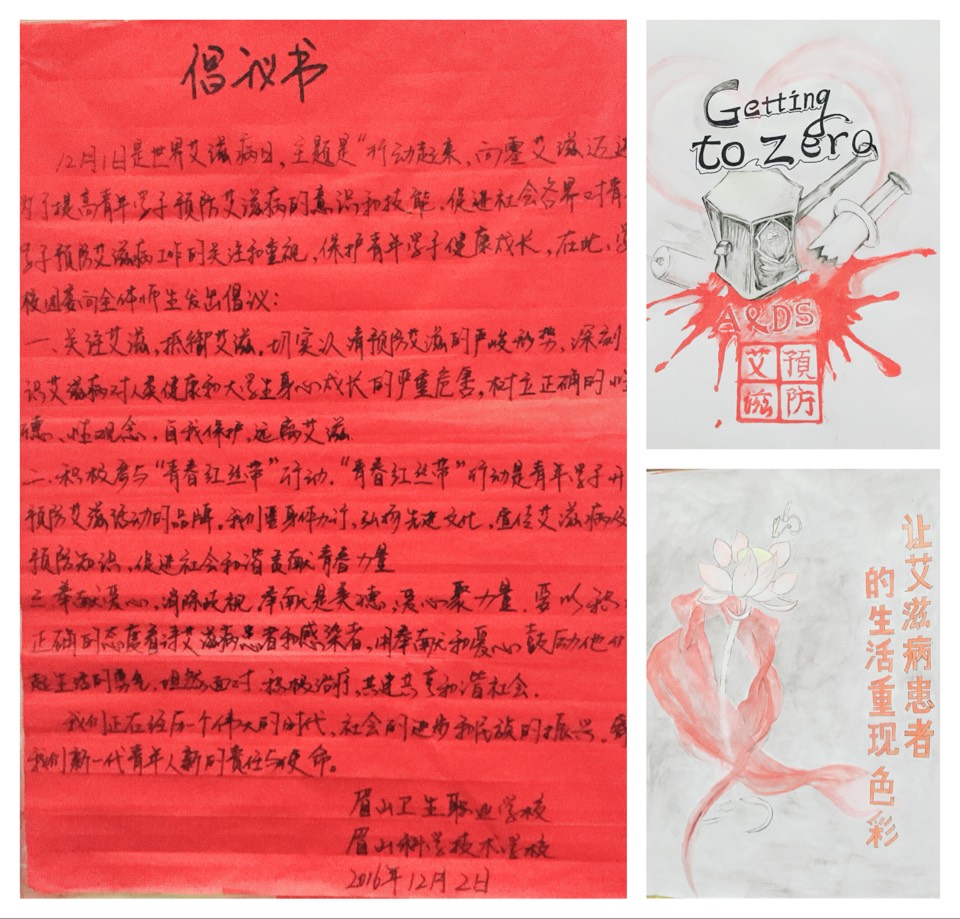 倡议书
12月1日是世界艾滋病日，主题是"行动起来，向零艾滋迈进
为了提高青年学子预防艾滋病的意识和技能，促进社会各界对青
学子预防艾滋病工作的关注和重视，保护青年学子健康成长，在此，学
校团委向全体师生发出倡议：
一、关注艾滋，抵御艾滋，切实认清预防艾滋的严峻形势，深刻
识艾滋病对人类健康和大学生身心成长的严重危害，树立正确的性
德、性观念，自我保护，远离艾滋
二、积极参与"青春红丝带"行动，"青春红丝带"行动是青年学子开
预防艾滋活动的品牌，我们要身体力行，弘扬先进文化，宣传艾滋病及
预防知识，促进社会和谐贡献青春力量
三、奉献爱心，消除歧视，奉献是美德，爱心聚力量，要以科
正确的态度看待艾滋病患者和感染者，用奉献和爱心鼓励他们
起生活的勇气，坦然面对 积极治疗，共建共享和谐社会．
我们正在经历一个伟大的时代、社会的进步和民族的振兴，
我们新一代青年人新的责任与使命。
眉山卫生职业学校
眉山科学技术学校
2016年12月2日
Getting
to zero
A&DS
艾預
滋防
让艾滋病患者
的生活重现色彩